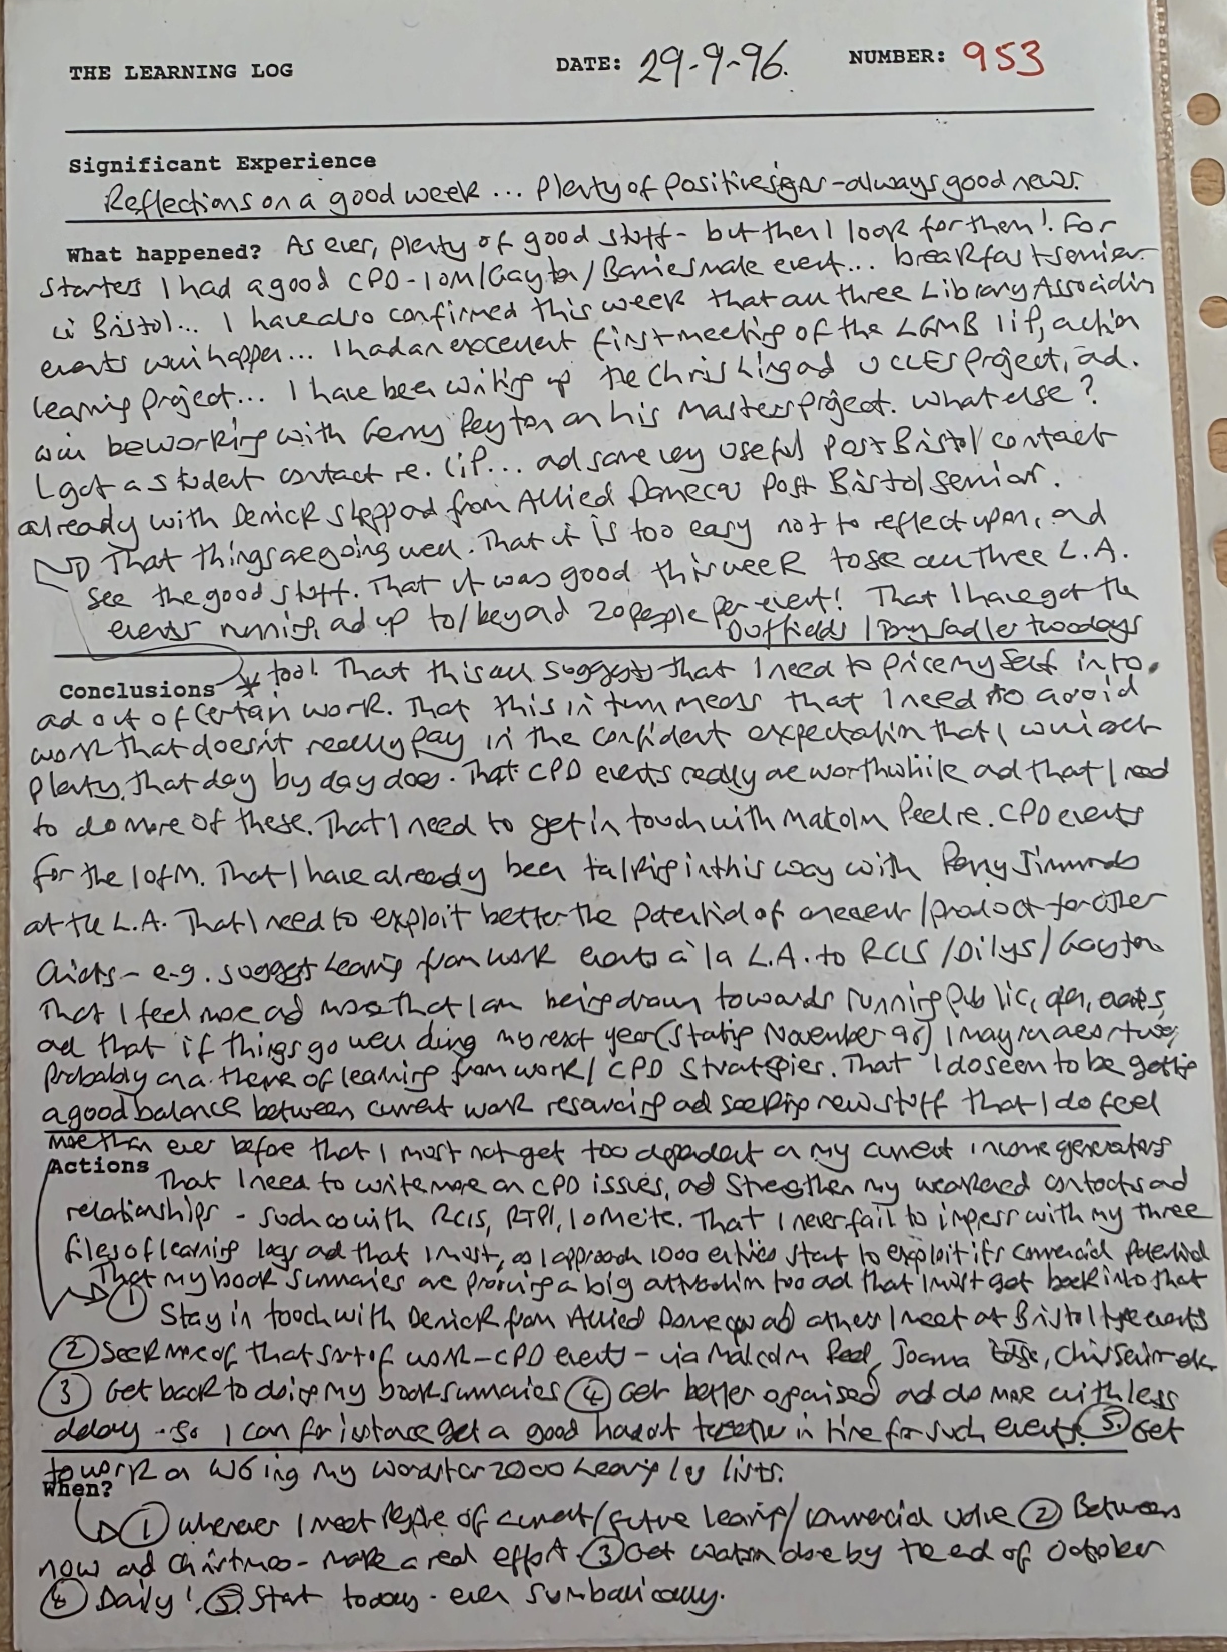 THE LEARNING LOG DATE: 29-9-96. NUMBER: 953
Significant Experience
Reflections on a good week ... plenty of positive signs - always good news.
What happened? As ever, plenty of good stuff - but then I look for them! For
starters I had a good CPD - IOM / Gayton / event... breakfast seminar
in Bristol... I have also confirmed this week that all three Library Association
events will happen... I had an excellent first meeting of the LGMB lif, action
learning project... I have been writing up the Chris Ling ad UCLES project, ad.
will be working with Gerry Peyton on his Masters project. What else?
I got a student contact re. lif... ad some very useful post Bristol contact
already with Derrick Sheppard from Allied Domecq post Bristol seminar.
That things are going well. That it is too easy not to reflect upon, ad
see the good stuff. That it was good this week to see all three L.A.
events running, ad up to/beyond 20 people per event! That I have got the
Duffields / Sadler two days
Conclusions * too! That this all suggests that I need to price myself into.
ad out of certain work. That this in turn means that I need to avoid
work that doesn't really pay in the confident expectation that I will get
plenty, that day by day does. That CPD events really are worthwhile ad that I need
to do more of these. That I need to get in touch with Malcolm Peel re. CPD events
for the I of M. That I have already been talking in this way with Perry Timmonds
at the L.A. That I need to exploit better the potential of one event/product for other
clients - e.g. suggest Learning from work events à la L.A. to RCIS / Dilys / Gayton
That I feel more ad more that I am being drawn towards running public, open, events,
ad that if things go well during my next year (starting November 96) I may run one or two,
probably on a theme of learning from work / CPD Strategies. That I do seem to be getting
a good balance between current work resourcing ad seeking new stuff that I do feel
more than ever before that I must not get too dependent on my current income generators
Actions That I need to write more on CPD issues, ad strengthen my weakened contacts ad
relationships - such as with RCIS, RTPI, IOM etc. That I never fail to impress with my three
files of learning logs ad that I must, as I approach 1000 entries start to exploit its commercial potential
That my book summaries are proving a big attraction too ad that I must get back into that
① Stay in touch with Derrick from Allied Domecq ad others I meet at Bristol type events
② Seek more of that sort of work - CPD events - via Malcolm Peel, Joanna
③ Get back to doing my book summaries ④ Get better organised ad do more with less
delay - so I can for instance get a good handout together in time for such events. ⑤ Get
to work on my Wordstar 2000 Learning Log lists.
When?
① Whenever I meet people of current/future learning/commercial value ② Between
now ad Christmas - make a real effort. ③ Get done by the end of October
④ Daily! ⑤ Start today - even symbolically.